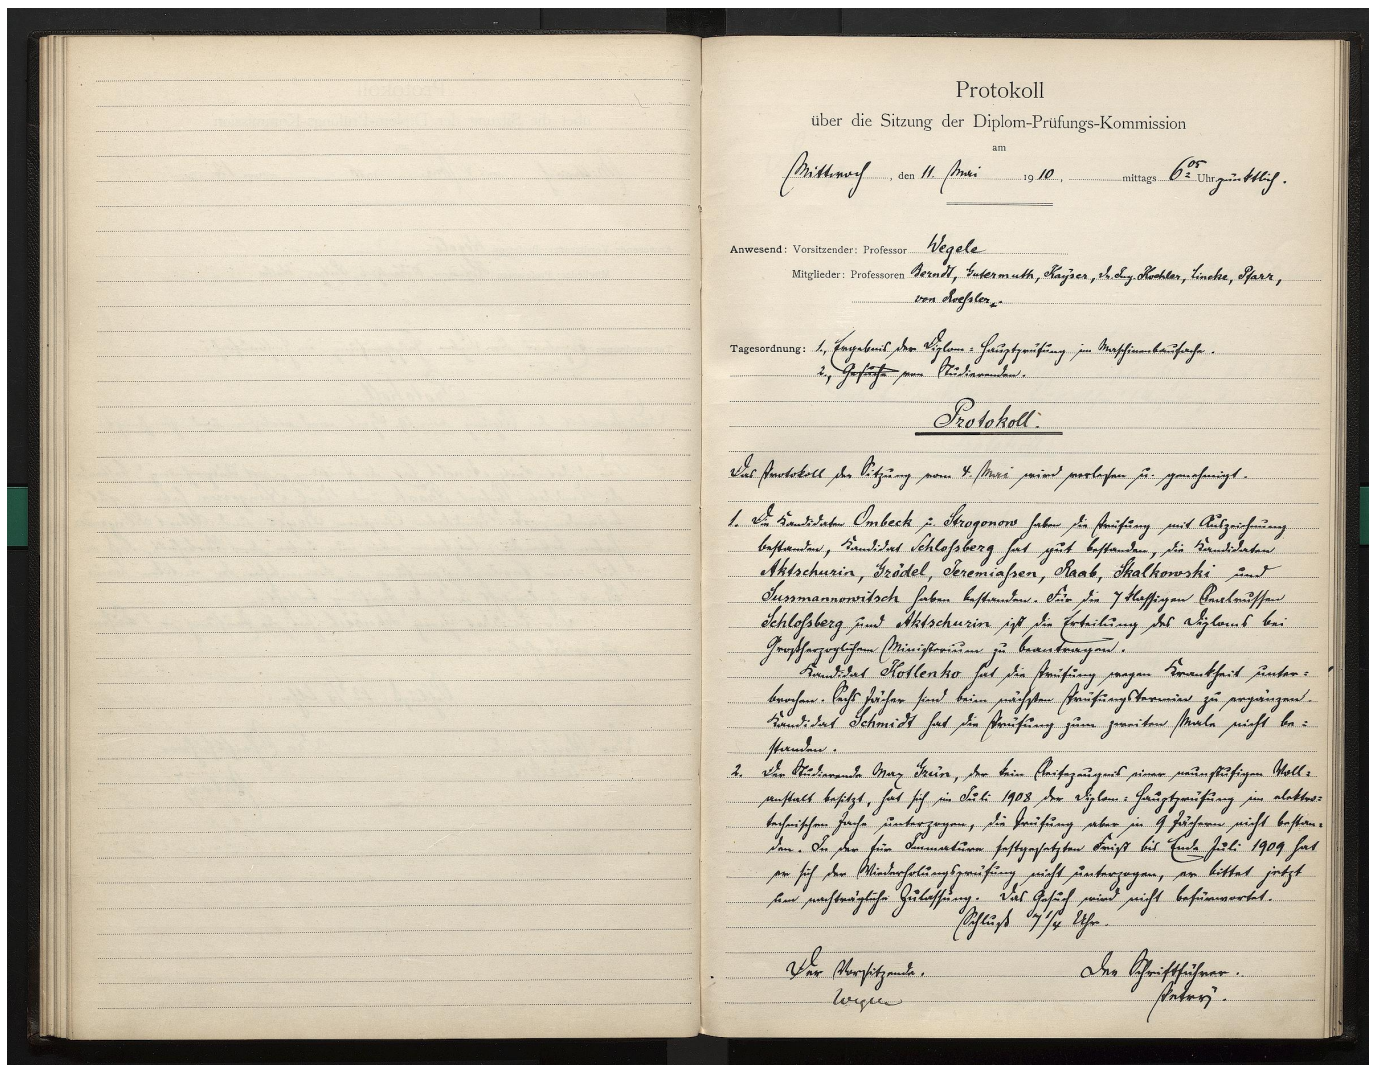 Protokoll
über die Sitzung der Diplom-Prüfungs-Kommission
am
Mittwoch, den 11. Mai 1910, mittags 6 05 Uhr pünktlich.
Anwesend: Vorsitzender: Professor Wegele
Mitglieder: Professoren Berndt, Gutermuth, Kayser, Dr. Ing. Koehler, Lincke, Pfarr,
von Roeßler.
Tagesordnung: 1., Ergebnis der Diplom-Hauptprüfung im Maschinenbaufache.
2., Gesuche von Studierenden.
Protokoll.
Das Protokoll der Sitzung vom 4. Mai wird verlesen u. genehmigt.
1. Die Kandidaten Ombeck u. Strogonow haben die Prüfung mit Auszeichnung
bestanden, Kandidat Schloßberg hat gut bestanden, die Kandidaten
Aktschurin, Grödel, Jeremiaßen, Raab, Skalkowski und
Sussmannowitsch haben bestanden. Für die 7 klassigen Realrussen
Schloßberg und Aktschurin ist die Erteilung des Diploms bei
Großherzoglichem Ministerium zu beantragen.
Kandidat Kotlenko hat die Prüfung wegen Krankheit unter-
brochen. Sechs Fächer sind beim nächsten Prüfungstermin zu ergänzen.
Kandidat Schmidt hat die Prüfung zum zweiten Male nicht be-
standen.
2. Der Studierende Max Grün, der kein Reifezeugnis einer neunstufigen Voll-
anstalt besitzt, hat sich im Juli 1908 der Diplom-Hauptprüfung im elektro-
technischen Fache unterzogen, die Prüfung aber in 9 Fächern nicht bestan-
den. In der für Immature festgesetzten Frist bis Ende Juli 1909 hat
er sich der Wiederholungsprüfung nicht unterzogen, er bittet jetzt
um nachträgliche Zulassung. Das Gesuch wird nicht befürwortet.
Schluß 7 1/4 Uhr.
Der Vorsitzende. Der Schriftführer.
Wegele Petry.